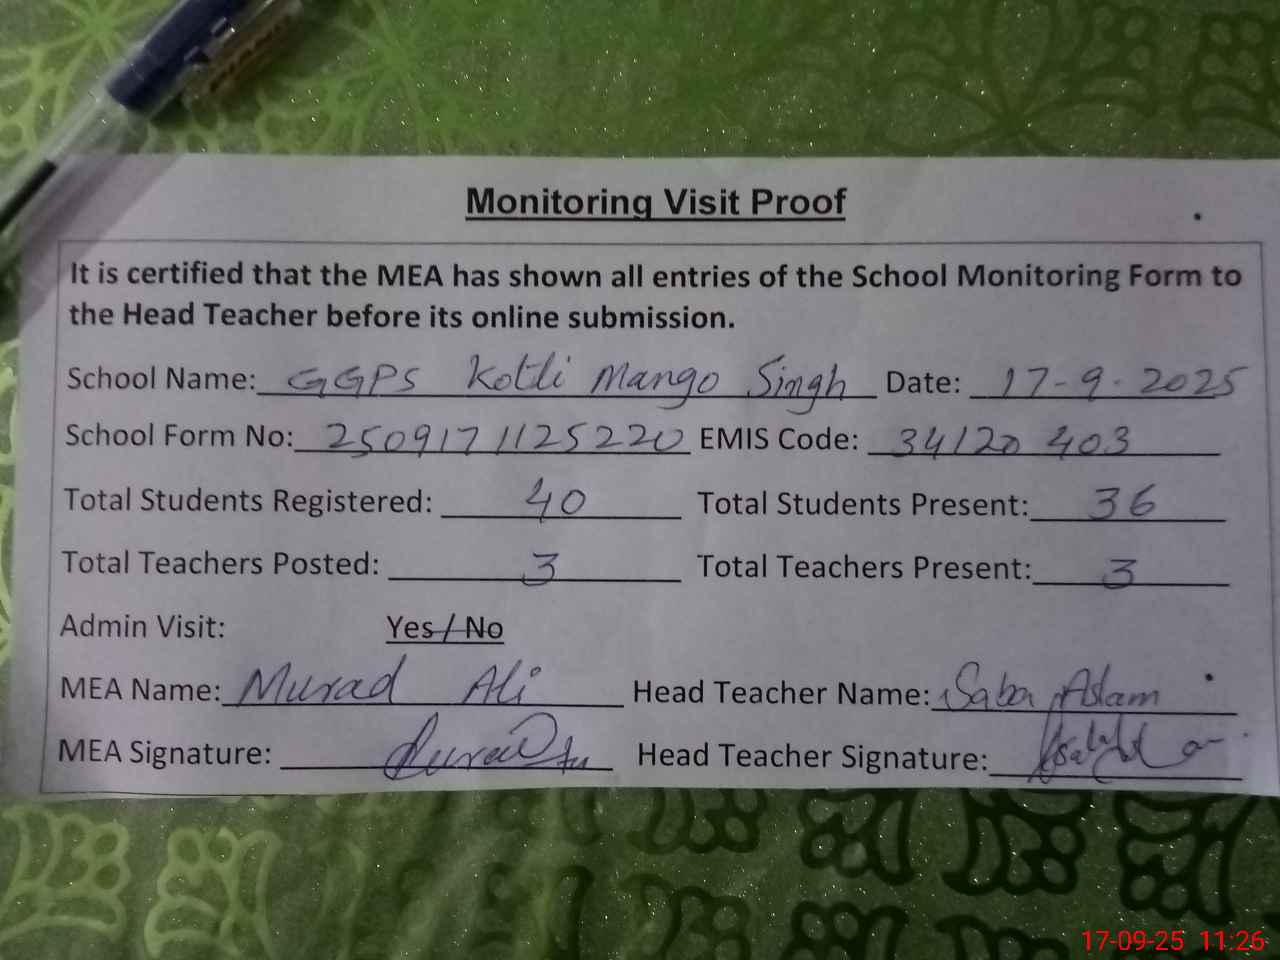 Monitoring Visit Proof
It is certified that the MEA has shown all entries of the School Monitoring Form to
the Head Teacher before its online submission.
School Name: GGPS Kotli Mango Singh Date: 17-9-2025
School Form No: 250917 1125220 EMIS Code: 34120 403
Total Students Registered: 40 Total Students Present: 36
Total Teachers Posted: 3 Total Teachers Present: 3
Admin Visit: Yes / No
MEA Name: Murad Ali Head Teacher Name: Saba Aslam
MEA Signature: Head Teacher Signature:
17-09-25 11:26